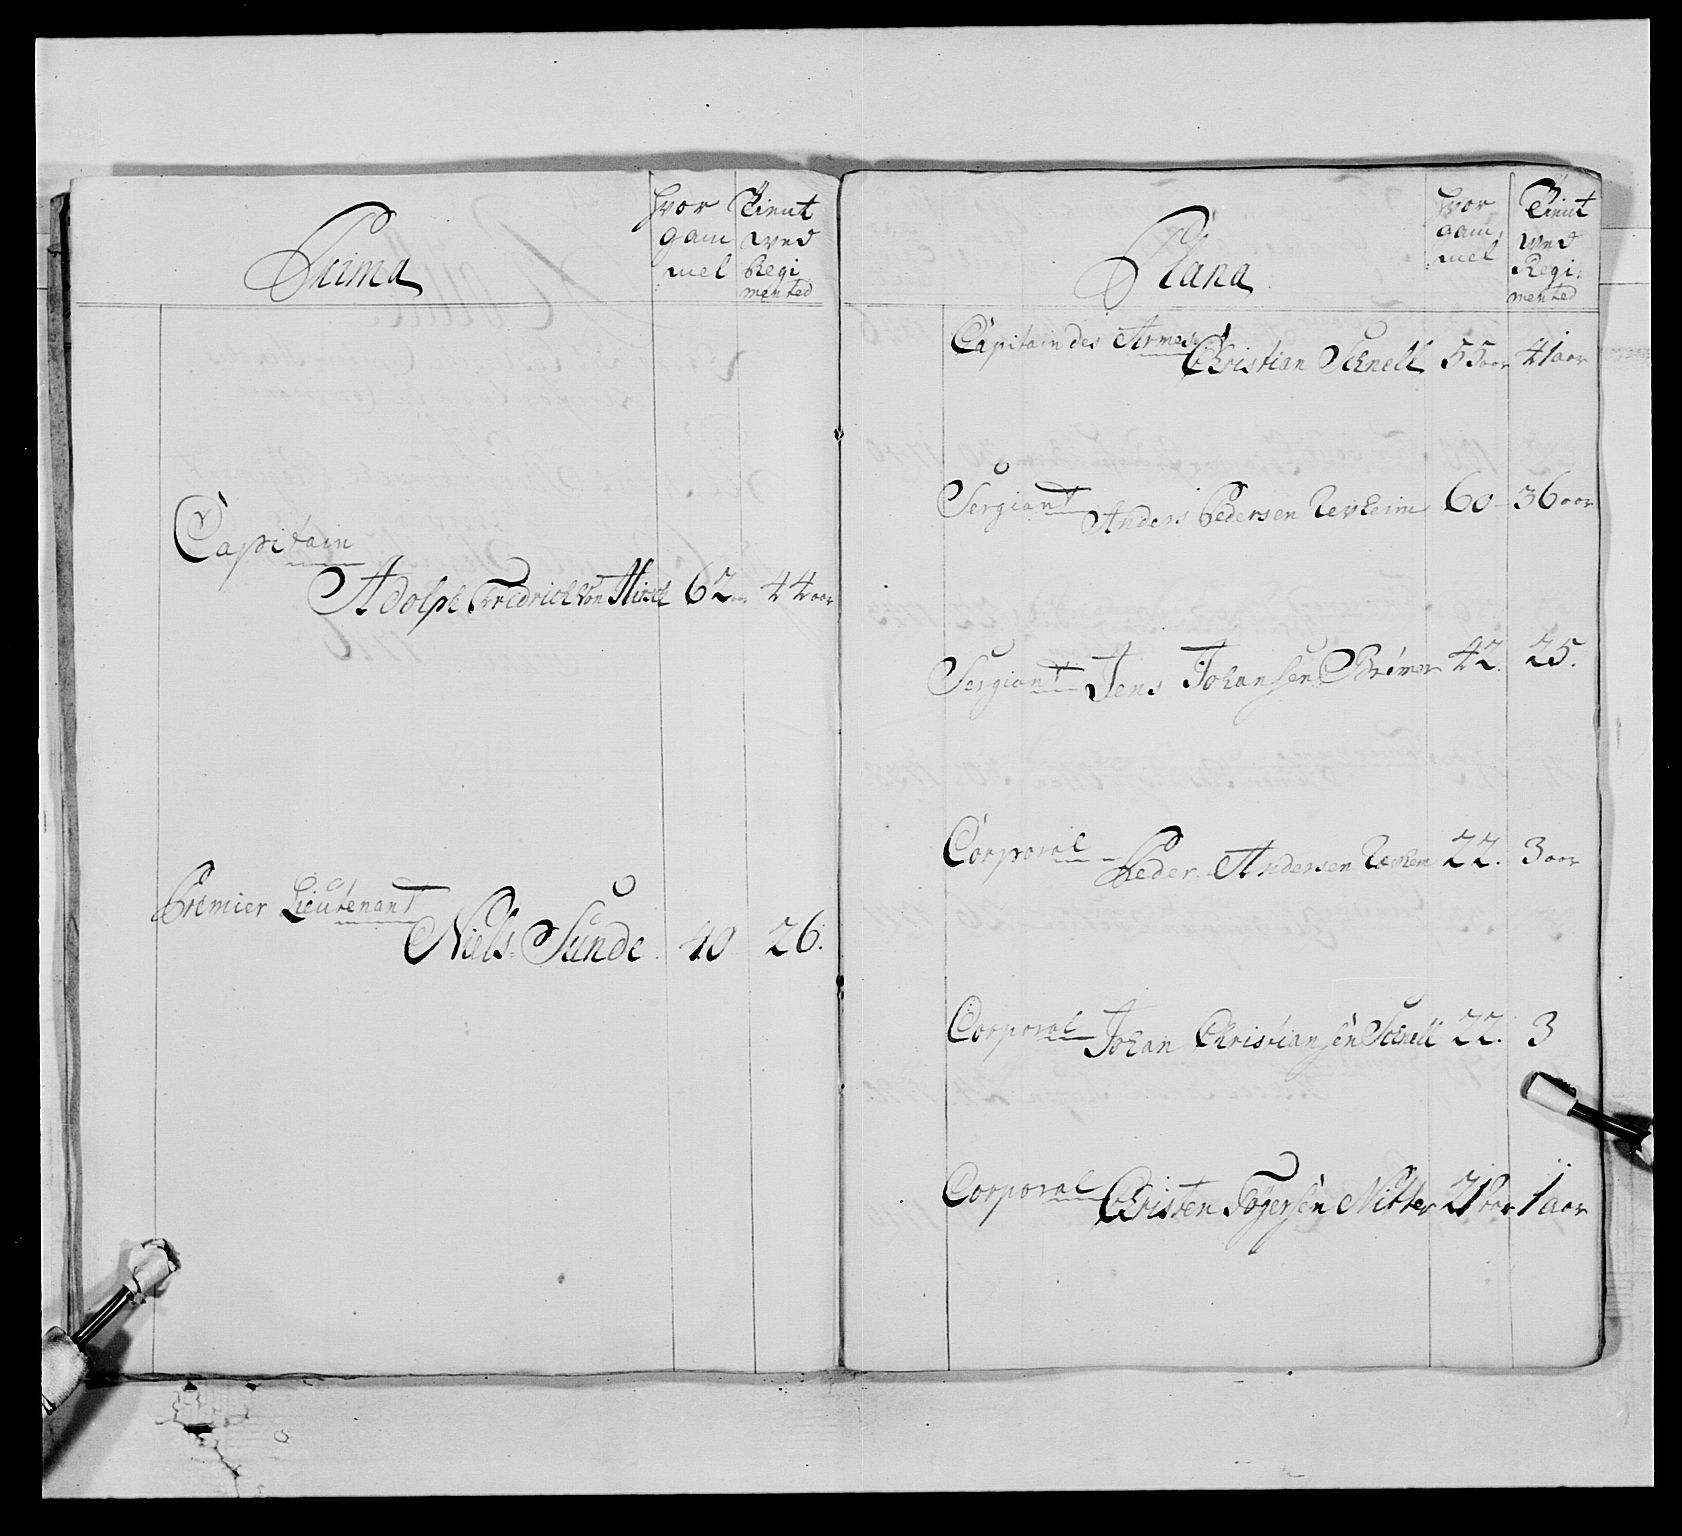 Prima
hvor
gam
mel
Tient
ved
Regi
mented
Capitain
Adolph Fredrich von Hirsch 62 44 aar
Premier Lieutenant
Niels Sunde 40 26.
Plana
hvor
gam,
mel
Tient
ved
Regi:
mented
Capitain des Armes
Christian Schnell 55 aar 41 aar
Sergiant Anders Pedersen 60 36 aar
Sergiant Jens Johansen 42. 25.
Corporal Peder Andersen 22. 3 aar
Corporal Johan Christiansen Schnell 22. 3
Corporal Christen Togersen Nitter 21 aar 1 aar